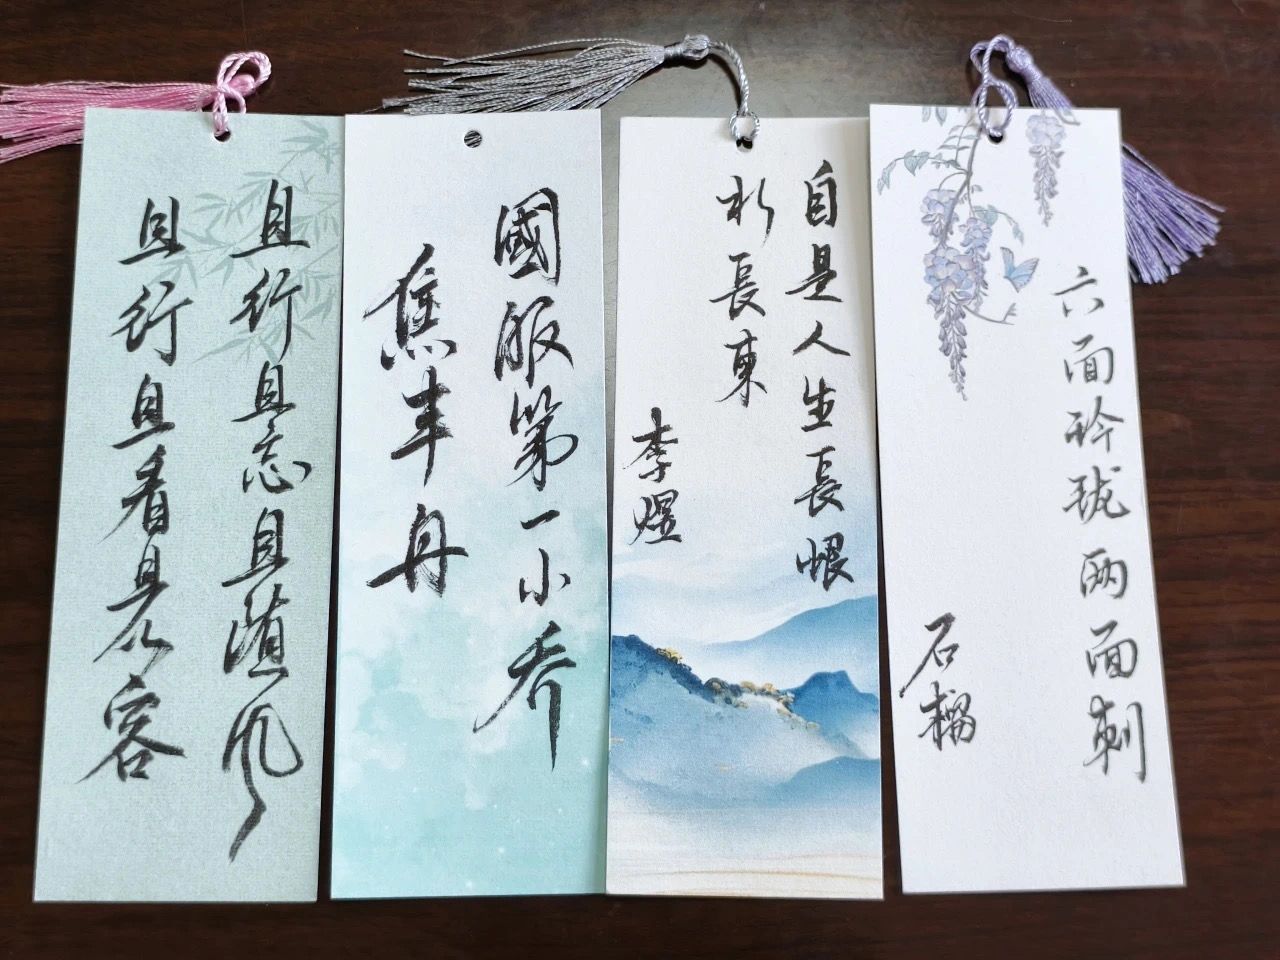 且行且忘且随风
且行且看且从容
國服第一小乔
焦丰舟
自是人生長恨
水長東
李煜
六面玲珑两面刺
石榴